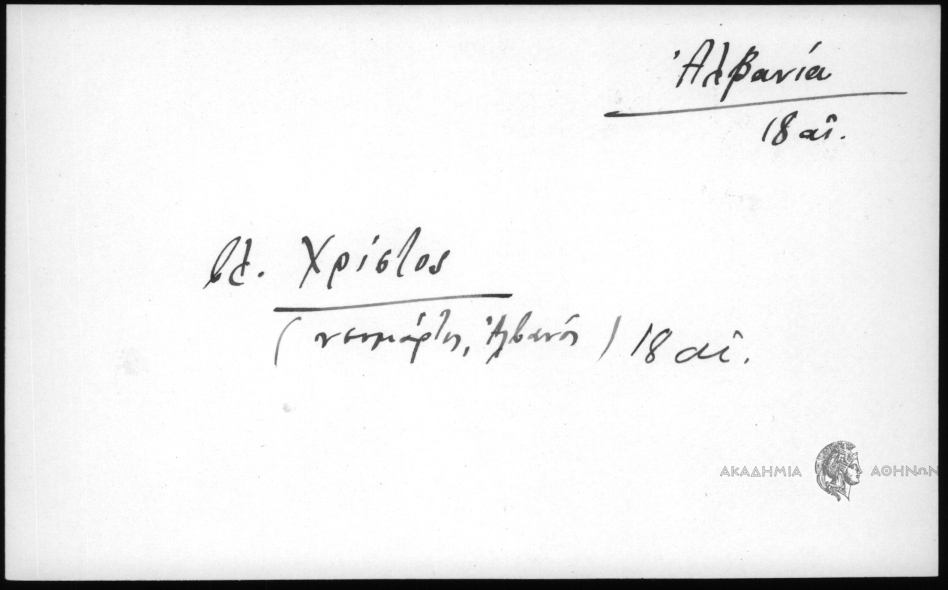 Ἀλβανία
18 αἰ.
βλ. Χρίστος
(νεομάρτυς, Ἀλβανός) 18 αἰ.
ΑΚΑΔΗΜΙΑ ΑΘΗΝΩΝ